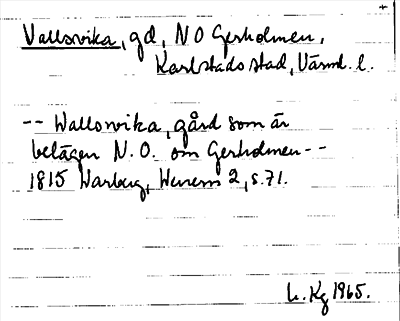 Vallsvika, gd, NO Gerholmen,
Karlstads stad, Värml. l.
-- Wallsvika, gård som är
belägen N.O. om Gerholmen--
1815 Warberg, Wenern 2, s. 71.
L. Kg 1965.